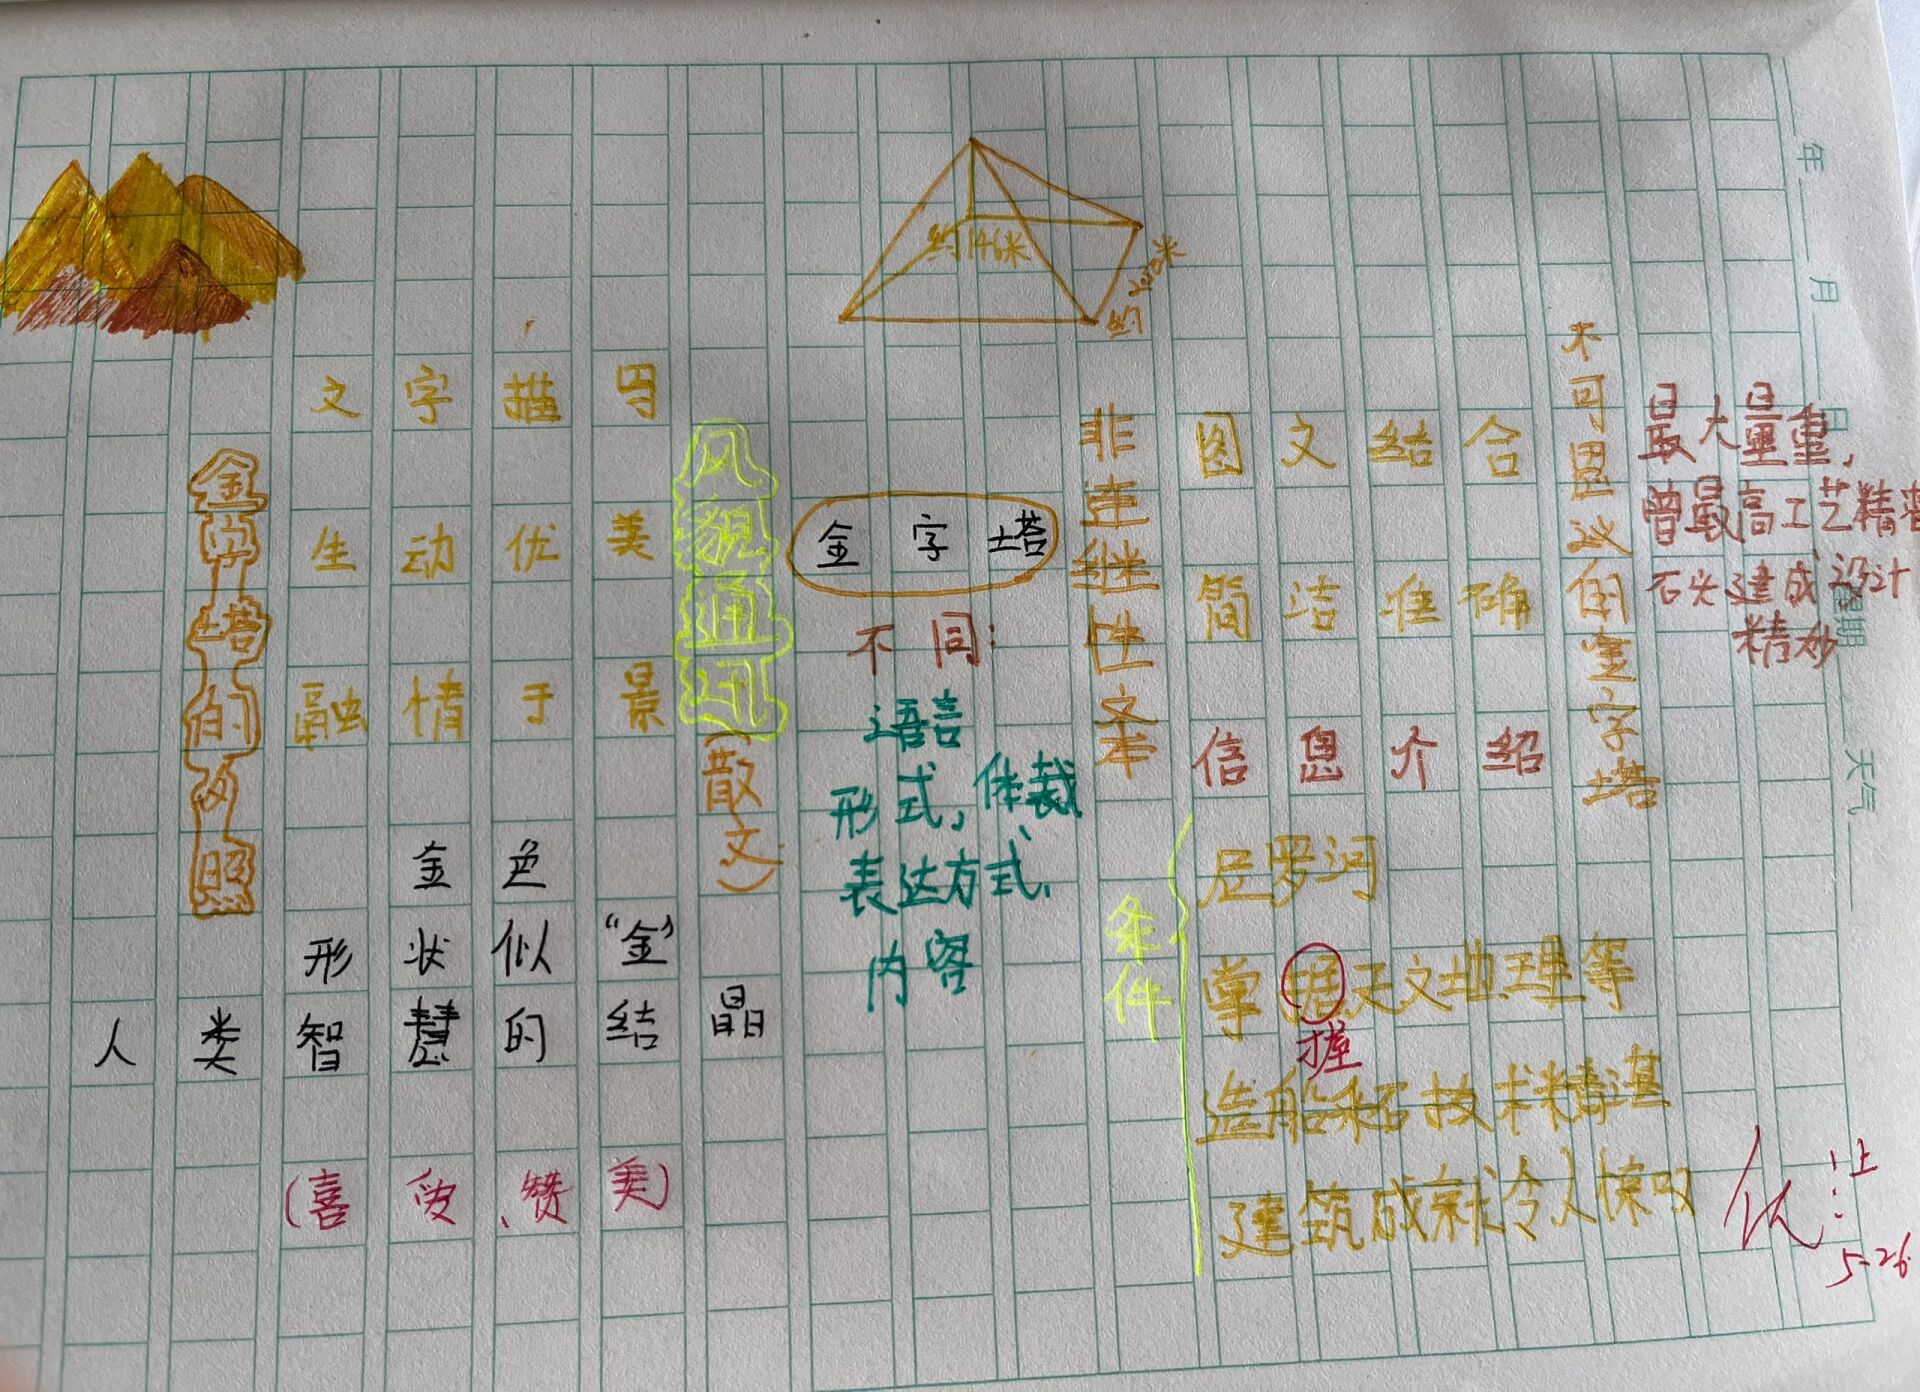 约146米
约
年
月
日
星期
天气
文字描写
生动优美
融情于景
金字塔的夕照
金色
形状似“金”
人类智慧的结晶
(喜爱、赞美)
风貌通讯
(散文)
金字塔
不同:
语言
形式,体裁、
表达方式、
内容
非连继性文本
图文结合
简洁准确
信息介绍
不可思议的金字塔
最大量重,
曾最高工艺精
石头建成设计
精妙
条件
尼罗河
掌据天文地理等
握
造船和技术精湛
建筑成就令人惊叹
优:上
5-26.